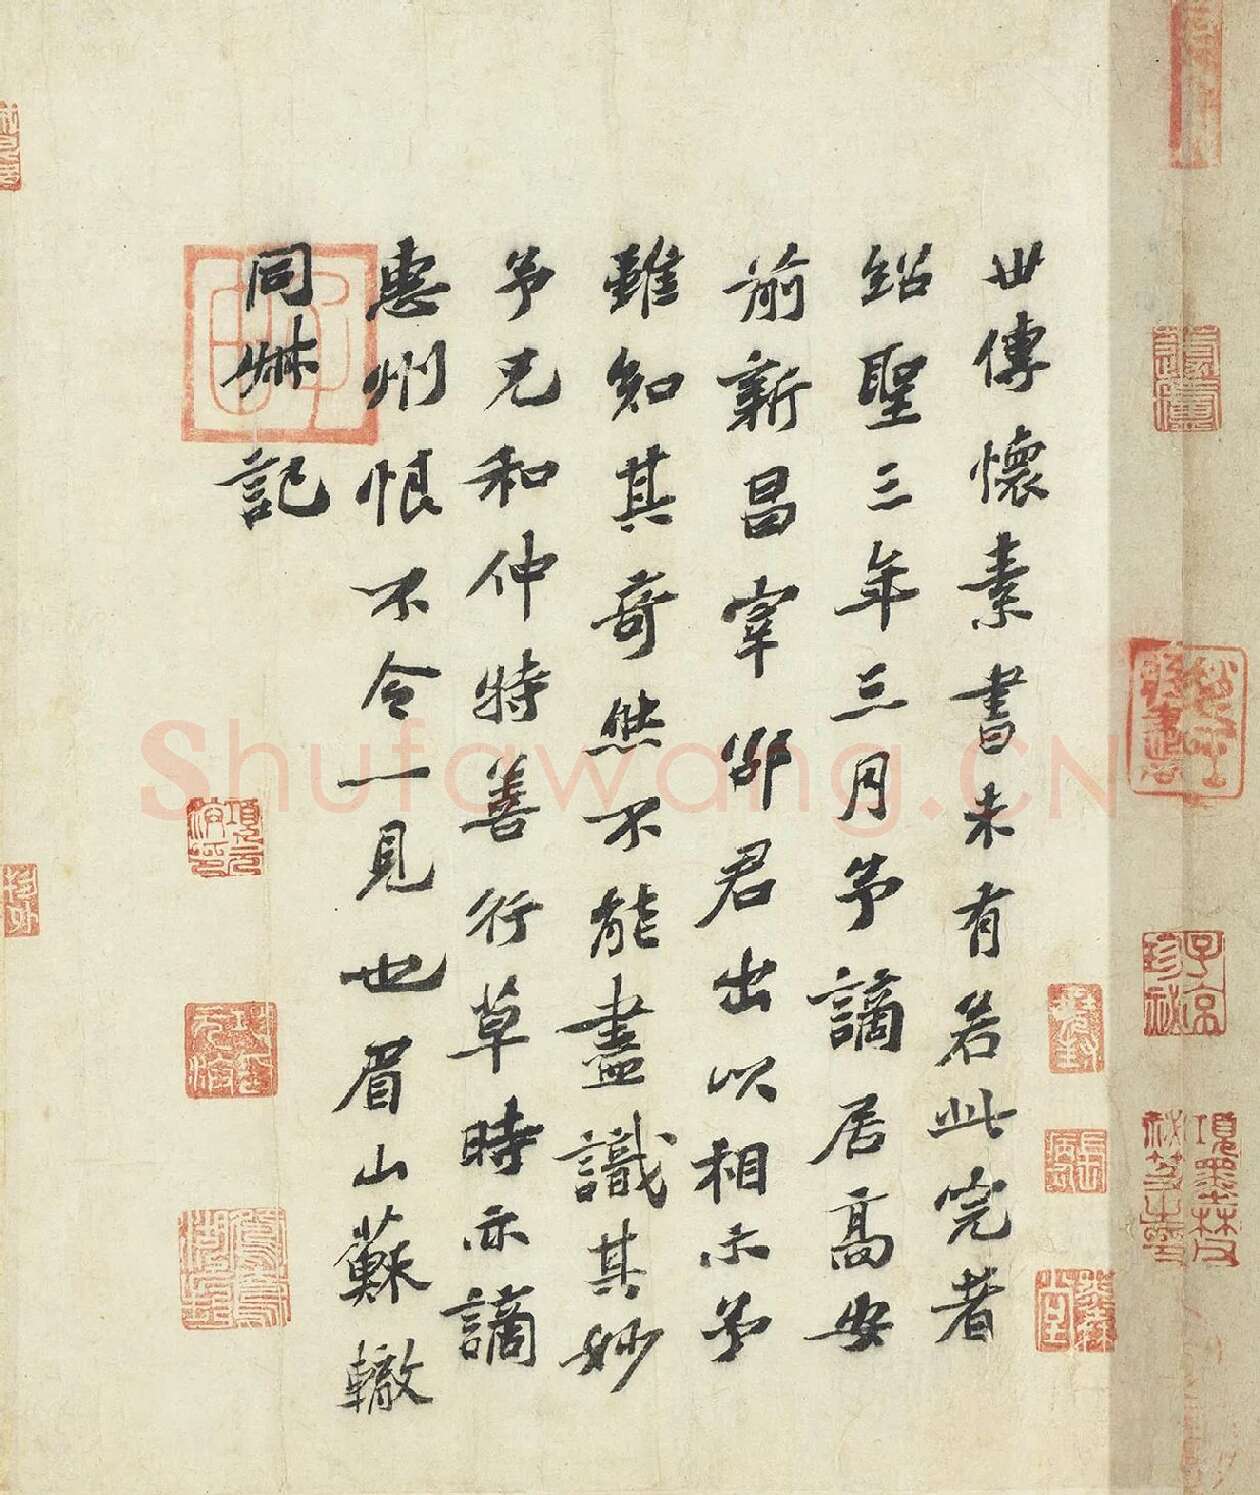 世傳懷素書未有若此完者
紹聖三年三月予謫居高安
前新昌宰邵君出以相示予
雖知其奇然不能盡識其妙
予兄和仲特善行草時亦謫
惠州恨不令一見也眉山蘇轍
同叔記
Shufawang.CN
子京珍秘
項元汴印
項墨林父秘笈之印